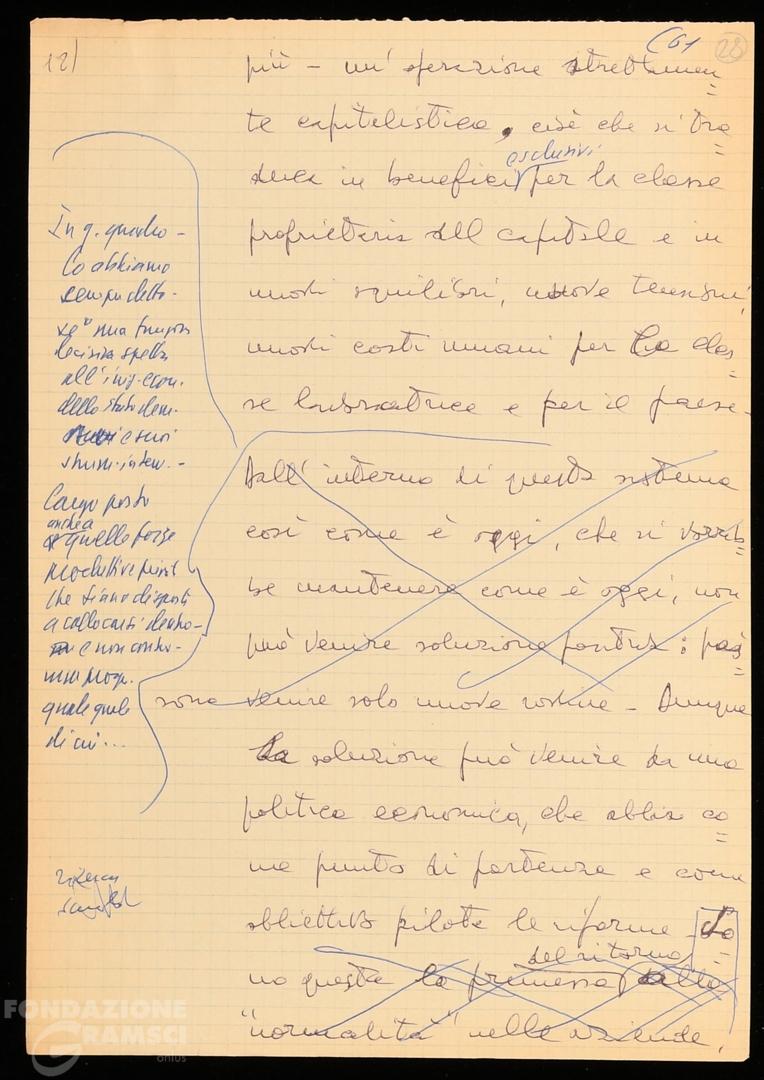 12)
61
28
più - un'operazione strettamen=
te capitalistica, cioè che si tra=
duca in benefici esclusivi per la classe
proprietaria del capitale e in
nuovi squilibri, nuove tensioni,
nuovi costi umani per la clas=
se lavoratrice e per il paese -
Dall'interno di questo sistema
così come è oggi, che si vorreb=
be mantenere come è oggi, non
può venire soluzione positiva: pos=
sono venire solo nuove rovine - Dunque
la soluzione può venire da una
politica economica, che abbia co=
me punto di partenza e come
obbiettivo pilota le riforme - So=
no queste la premessa del ritorno alla
"normalità" nelle aziende,
In q. quadro -
lo abbiamo
sempre detto -
una funzione
decisiva spetta
all'
dello Stato dem.
e suoi
Largo posto
anche a
quelle forze
produttive
che siano disposte
a collocarsi dentro -
e non contro -
quale quello
di cui...
FONDAZIONE
GRAMSCI
onlus